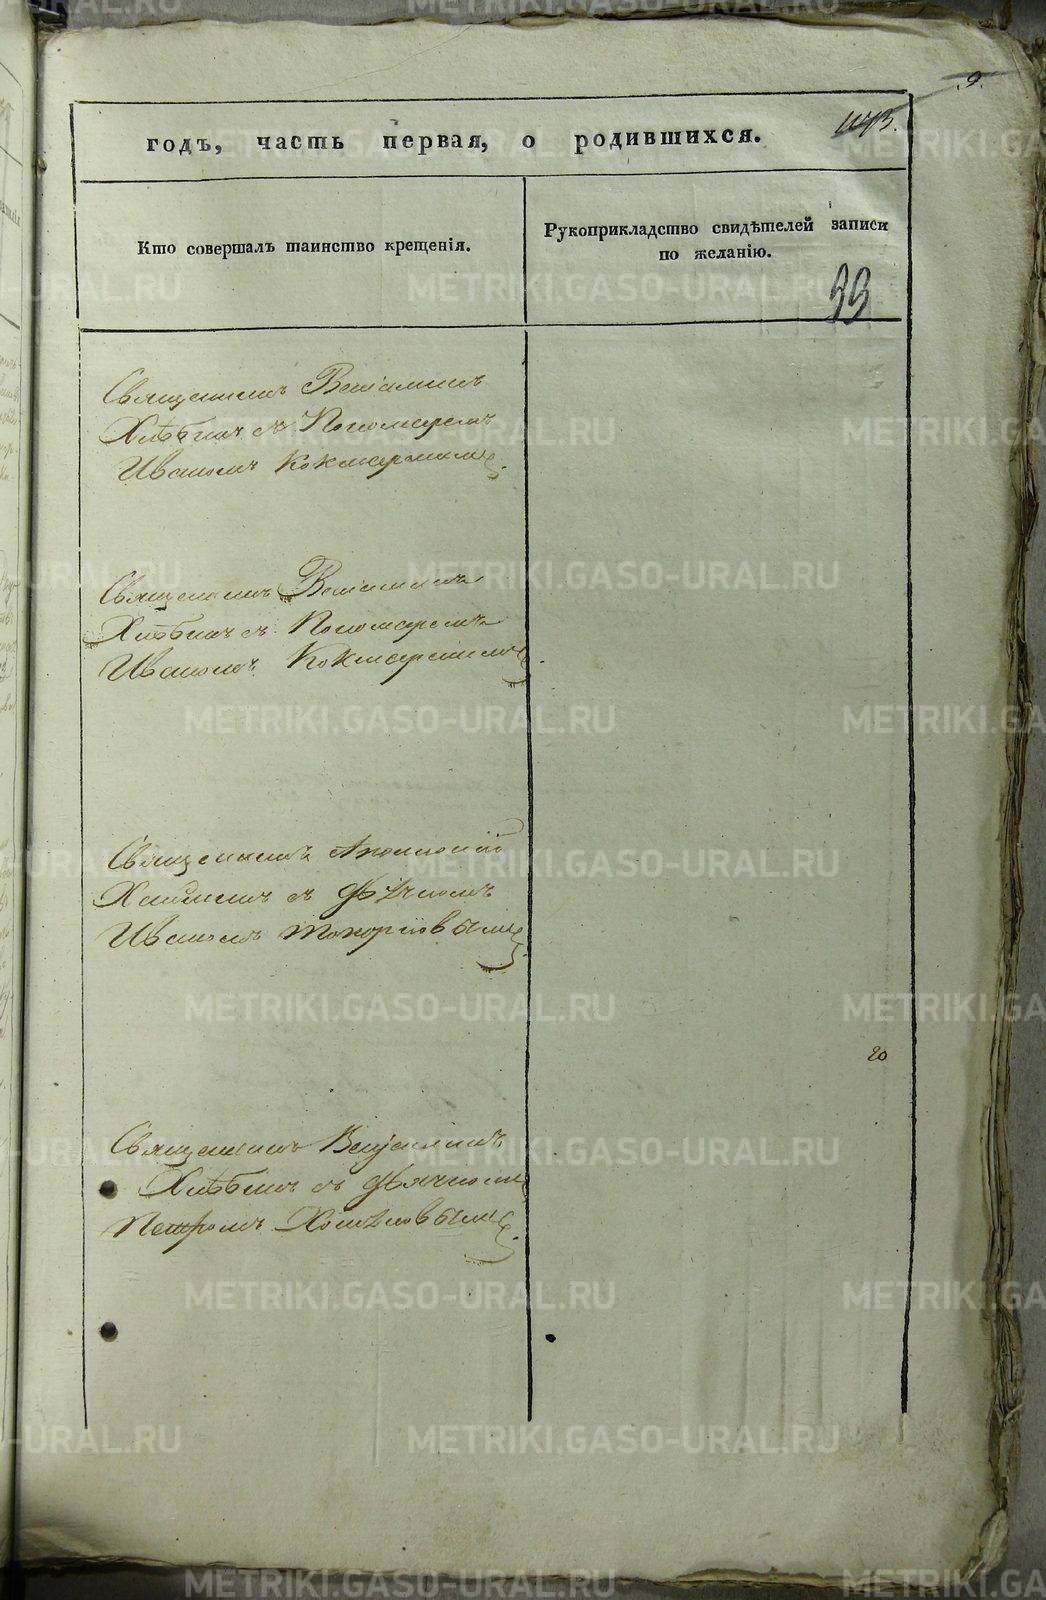 9.
годъ, часть первая, о родившихся.
Кто совершалъ таинство крещенія.
Рукоприкладство свидѣтелей записи
по желанію.
33
Священникъ Веніаминъ
Хлѣбинъ съ Пономаремъ
Иваномъ Кокшарскимъ.
Священникъ Веніаминъ
Хлѣбинъ съ Пономаремъ
Иваномъ Кокшарскимъ.
Священникъ Аполлоній
съ Дьячкомъ
Иваномъ Топорковымъ.
20
Священникъ Веніаминъ
Хлѣбинъ съ Дьячкомъ
Петромъ Хомяковымъ.
METRIKI.GASO-URAL.RU